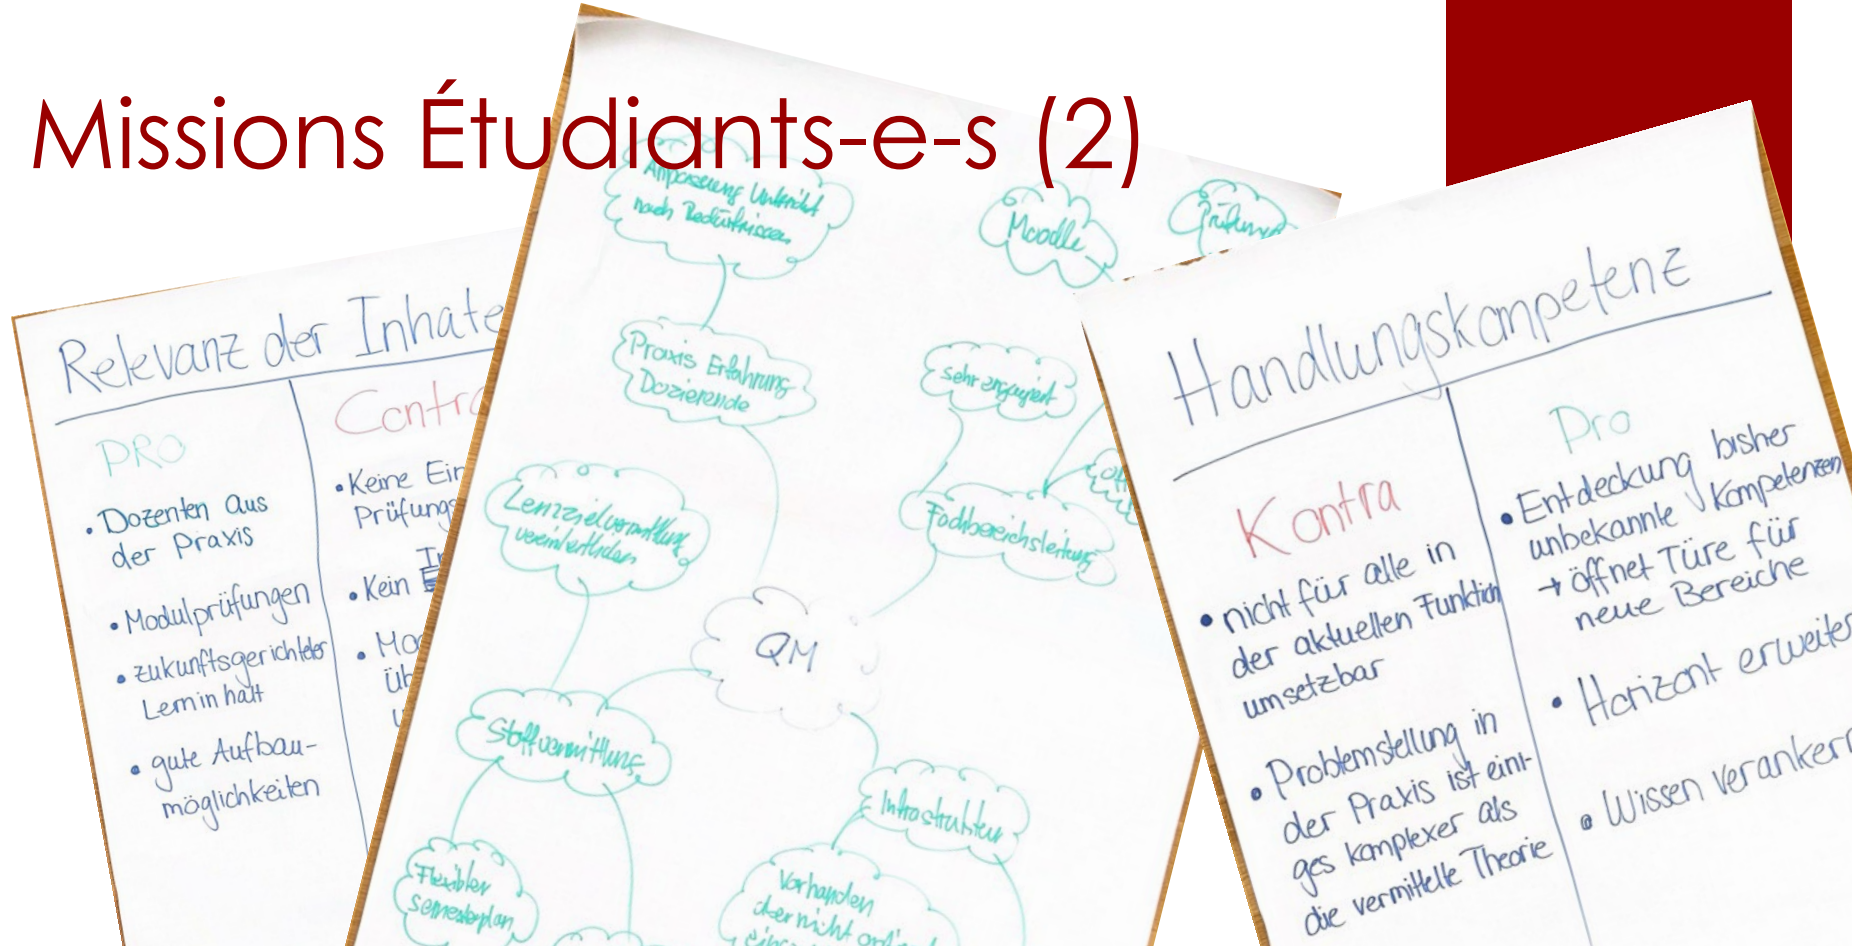 Missions Étudiants-e-s (2)
Relevanz der Inhate
PRO
• Dozenten aus
der Praxis
• Modulprüfungen
• zukunftsgerichteter
Lerninhalt
• gute Aufbau-
möglichkeiten
Contra
• Keine Ein
Prüfungs
• Kein
Anpassung Unterricht
nach Bedürfnissen
Praxis Erfahrung
Dozierende
Moodle
Prüfungen
sehr engagiert
Fachbereichsleitung
Lernzielvermittlung
QM
Stoffvermittlung
Flexibler
semesterplan
Infrastruktur
Vorhanden
aber nicht
Handlungskompetenz
Kontra
• nicht für alle in
der aktuellen Funktion
umsetzbar
• Problemstellung in
der Praxis ist eini-
ges komplexer als
die vermittelte Theorie
Pro
• Entdeckung bisher
unbekannte Kompetenzen
→ öffnet Türe für
neue Bereiche
• Horizont erweiter
• Wissen verankern